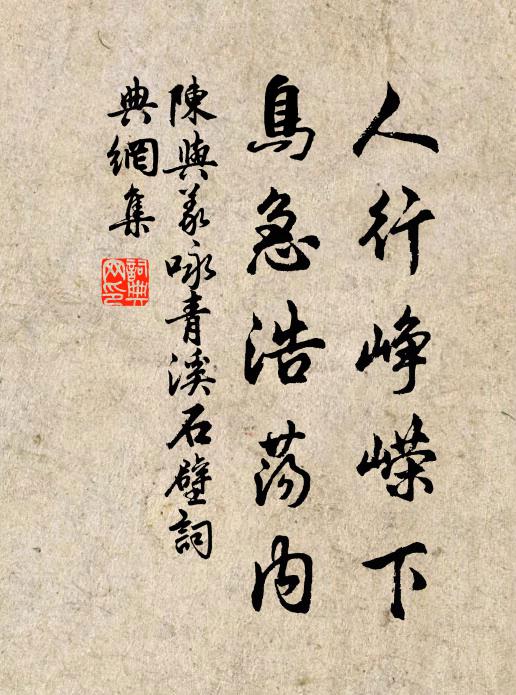 人行峥嵘下
鳥急浩荡内
陳與義咏青溪石壁詞
典網集
詞典
网印